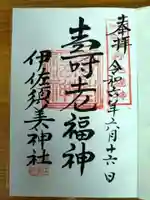 奉拝
令和六年六月十六日
壽老福神
伊佐須美神社